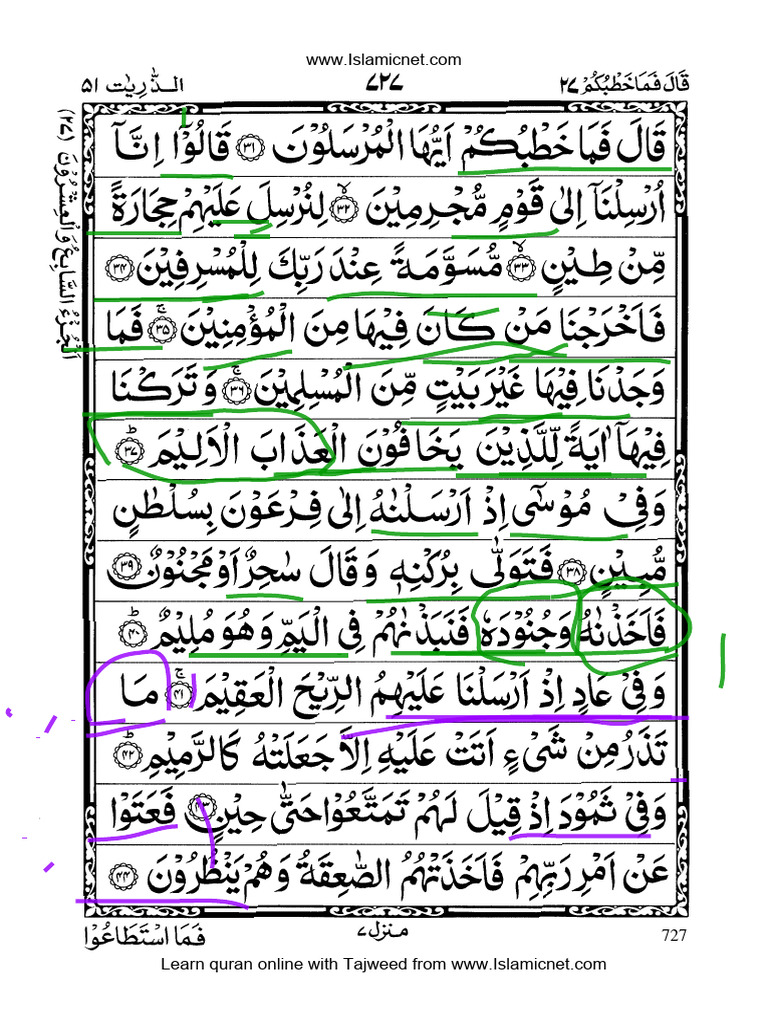 www.Islamicnet.com
قَالَ فَمَا خَطْبُكُمْ ٢٧
٧٢٧
الذّٰرِیٰت ٥١
اَلْجُزْءُ السَّابِعُ وَالْعِشْرُوْنَ (٢٧)
قَالَ فَمَا خَطْبُكُمْ اَیُّهَا الْمُرْسَلُوْنَ ﴿٣١﴾ قَالُوْۤا اِنَّاۤ
اُرْسِلْنَاۤ اِلٰى قَوْمٍ مُّجْرِمِیْنَ ﴿٣٢﴾ۙ لِنُرْسِلَ عَلَیْهِمْ حِجَارَةً
مِّنْ طِیْنٍ ﴿٣٣﴾ۙ مُّسَوَّمَةً عِنْدَ رَبِّكَ لِلْمُسْرِفِیْنَ ﴿٣٤﴾
فَاَخْرَجْنَا مَنْ كَانَ فِیْهَا مِنَ الْمُؤْمِنِیْنَ ﴿٣٥﴾ۚ فَمَا
وَجَدْنَا فِیْهَا غَیْرَ بَیْتٍ مِّنَ الْمُسْلِمِیْنَ ﴿٣٦﴾ۚ وَتَرَكْنَا
فِیْهَاۤ اٰیَةً لِّلَّذِیْنَ یَخَافُوْنَ الْعَذَابَ الْاَلِیْمَ ﴿٣٧﴾ؕ
وَفِیْ مُوْسٰۤى اِذْ اَرْسَلْنٰهُ اِلٰى فِرْعَوْنَ بِسُلْطٰنٍ
مُّبِیْنٍ ﴿٣٨﴾ فَتَوَلّٰى بِرُكْنِهٖ وَقَالَ سٰحِرٌ اَوْ مَجْنُوْنٌ ﴿٣٩﴾
فَاَخَذْنٰهُ وَجُنُوْدَهٗ فَنَبَذْنٰهُمْ فِی الْیَمِّ وَهُوَ مُلِیْمٌ ﴿٤٠﴾ؕ
وَفِیْ عَادٍ اِذْ اَرْسَلْنَا عَلَیْهِمُ الرِّیْحَ الْعَقِیْمَ ﴿٤١﴾ۚ مَا
تَذَرُ مِنْ شَیْءٍ اَتَتْ عَلَیْهِ اِلَّا جَعَلَتْهُ كَالرَّمِیْمِ ﴿٤٢﴾ؕ
وَفِیْ ثَمُوْدَ اِذْ قِیْلَ لَهُمْ تَمَتَّعُوْا حَتّٰى حِیْنٍ ﴿٤٣﴾ فَعَتَوْا
عَنْ اَمْرِ رَبِّهِمْ فَاَخَذَتْهُمُ الصّٰعِقَةُ وَهُمْ یَنْظُرُوْنَ ﴿٤٤﴾
فَمَا اسْتَطَاعُوْا
منزل ٧
727
Learn quran online with Tajweed from www.Islamicnet.com